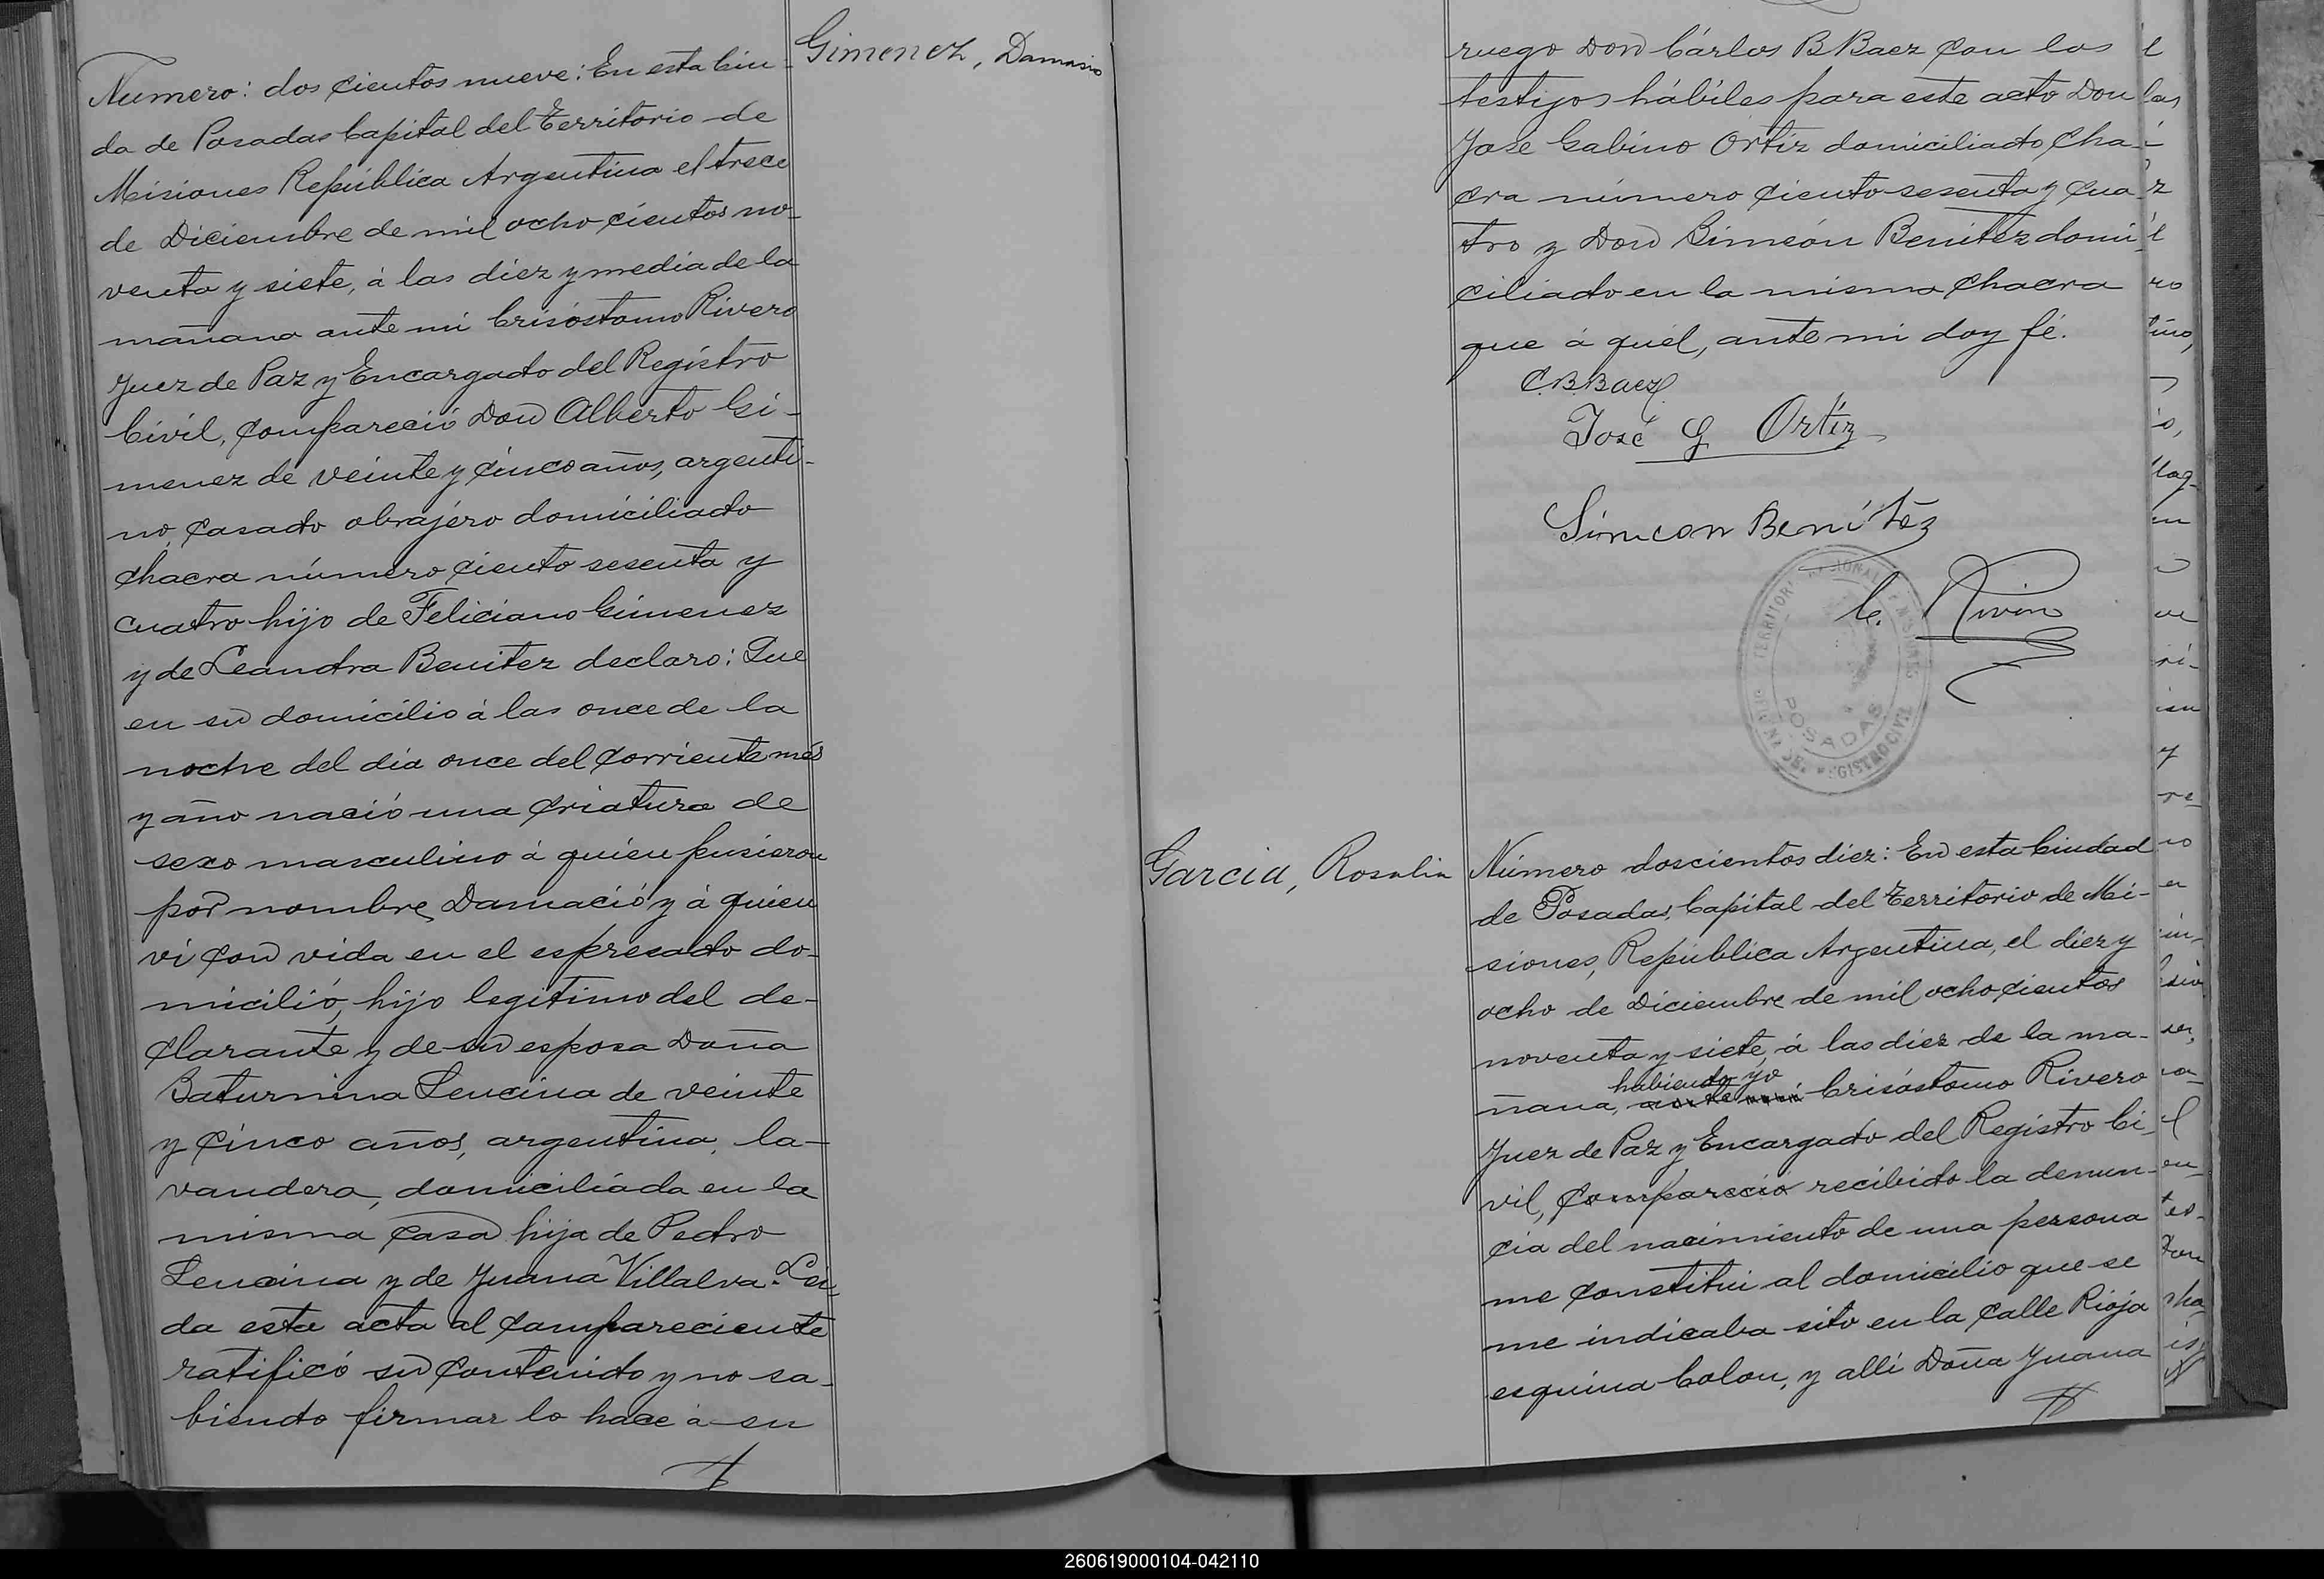 Gimenez, Damasio
Numero: dos cientos nueve: En esta Ciu-
da de Posadas Capital del Territorio de
Misiones República Argentina el trece
de Diciembre de mil ocho cientos no-
venta y siete, á las diez y media de la
mañana ante mi Crisóstomo Rivero
Juez de Paz y Encargado del Registro
Civil, compareció Don Alberto Gi-
menez de veinte y cinco años, argenti-
no, casado obrajero domiciliado
chacra número ciento sesenta y
cuatro hijo de Feliciano Gimenez
y de Leandra Benitez declaro: Que
en su domicilio á las once de la
noche del dia once del corriente més
y año nació una criatura de
sexo masculino á quien pusieron
por nombre Damació y á quien
vi con vida en el espresado do-
micilió, hijo legitimo del de-
clarante y de su esposa Doña
Saturnina Lencina de veinte
y cinco años, argentina, la-
vandera, domiciliada en la
misma casa hija de Pedro
Lencina y de Juana Villalva. Lei-
da esta acta al compareciente
ratificó su contenido y no sa-
biendo firmar lo hace á su
ruego Don Cárlos B Baez con los
testigos hábiles para este acto Don
José Gabino Ortiz domiciliado cha-
cra número ciento sesenta y cua-
tro y Don Simeón Benitez domi-
ciliado en la misma chacra
que á quel, ante mi doy fé.
C.B.Baez
José G Ortiz
Simeon Benítez
C. Rivero
POSADAS
REGISTRO CIVIL
Garcia, Rosalia
Número doscientos diez: En esta Ciudad
de Posadas, Capital del Territorio de Mi-
siones, República Argentina, el diez y
ocho de Diciembre de mil ocho cientos
noventa y siete, á las diez de la ma-
habiendo yo
ñana, ante mi Crisóstomo Rivero
Juez de Paz y Encargado del Registro Ci-
vil, compareció recibido la denun-
cia del nacimiento de una persona
me constitui al domicilio que se
me indicaba sito en la calle Rioja
esquina Colon, y alli Doña Juana
260619000104-042110